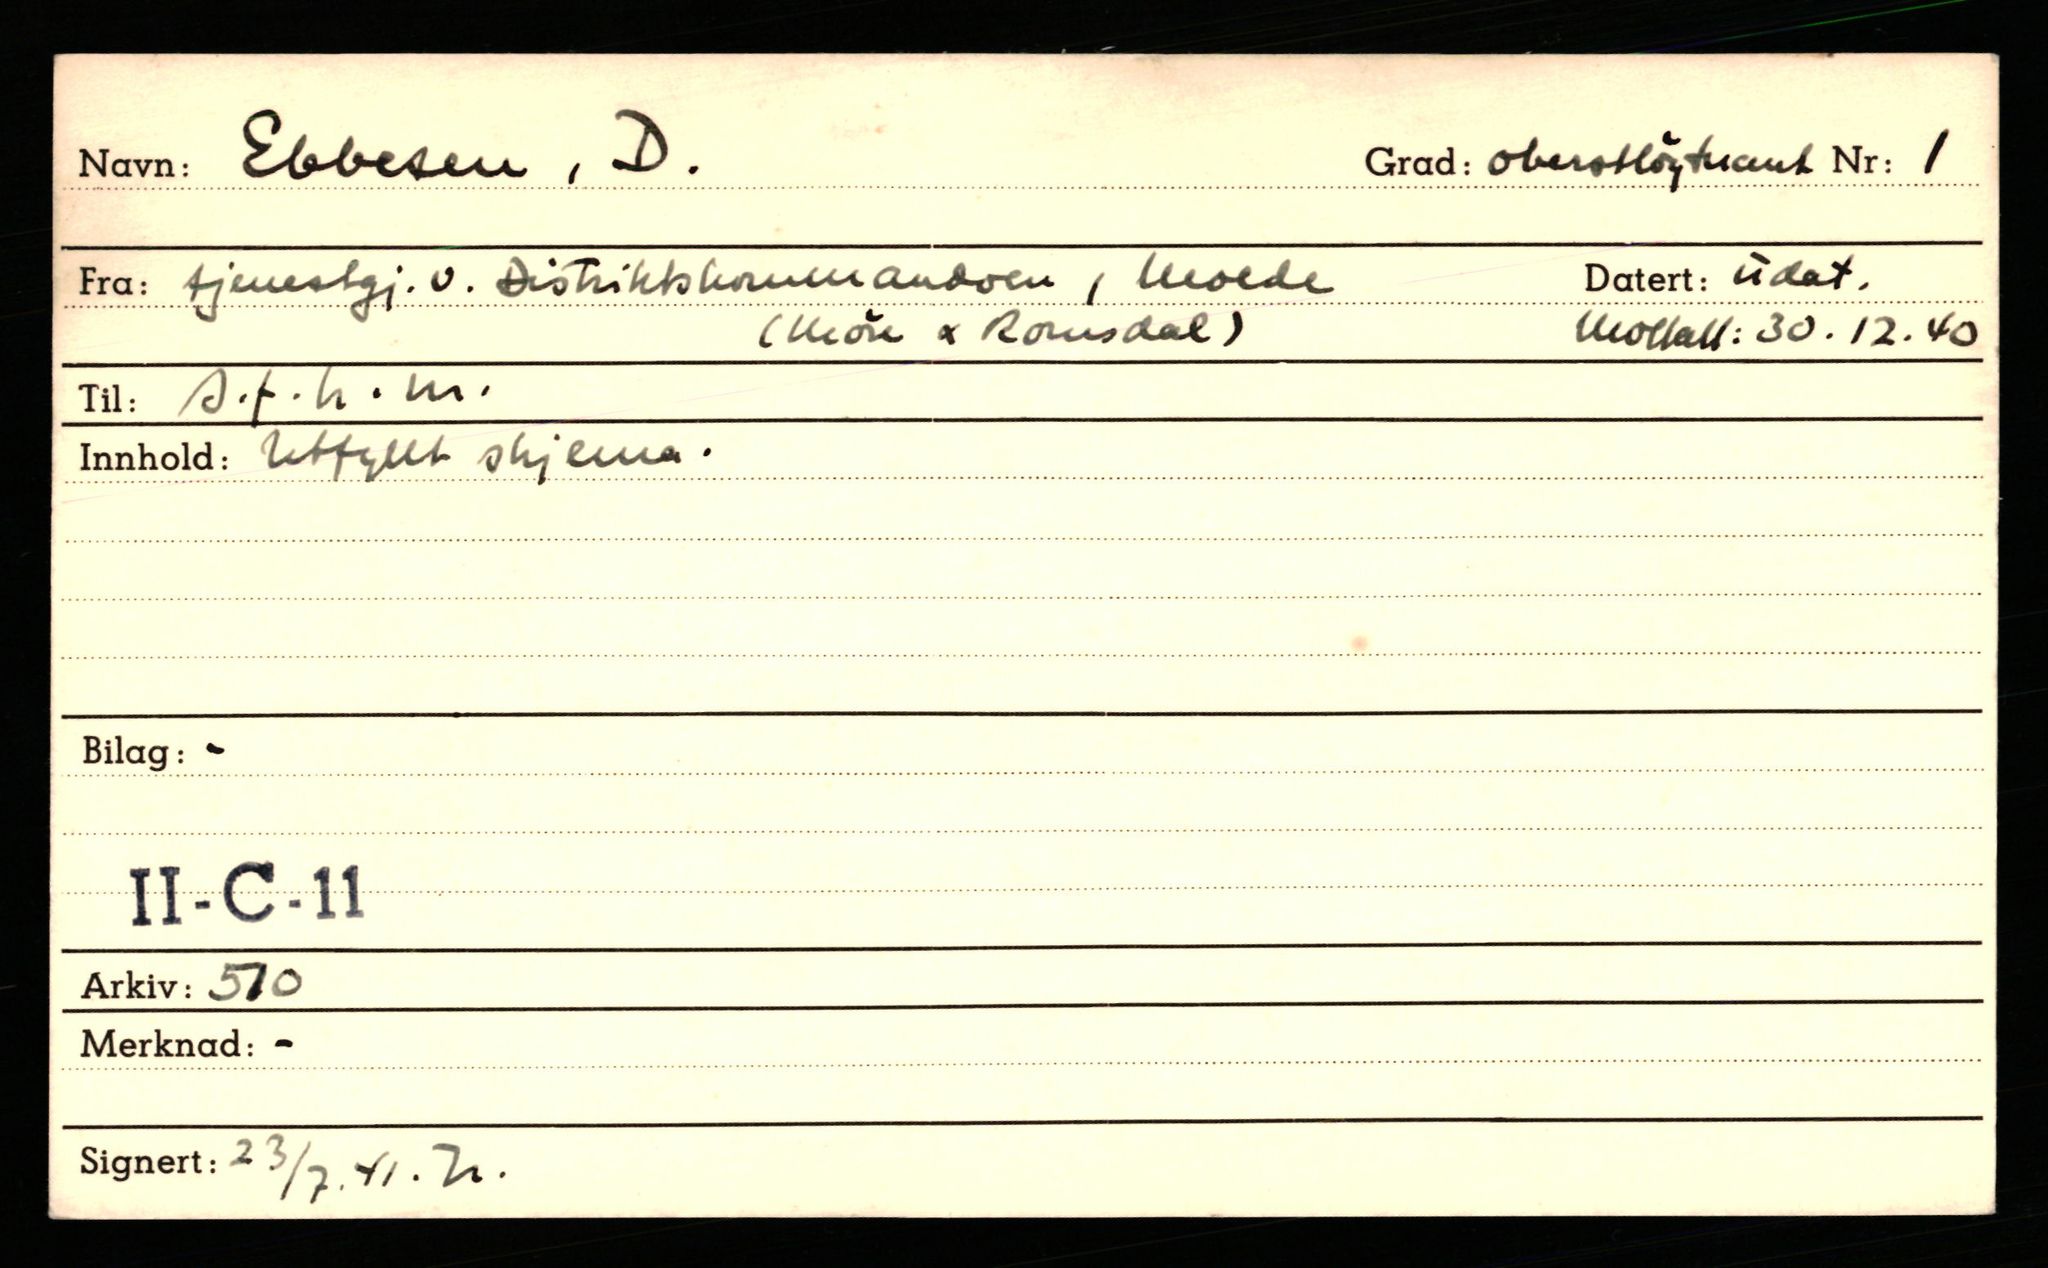 Navn: Ebbesen, D. Grad: oberstlöytnant Nr: 1
Fra: tjenestgj. v. Distriktskommandoen, Molde Datert: Udat.
(Möre & Romsdal) Mottatt: 30.12.40
Til: s.f.h.m.
Innhold: Utfyllt skjema.
Bilag: -
II-C-11
Arkiv: 510
Merknad: -
Signert: 23/7.41.